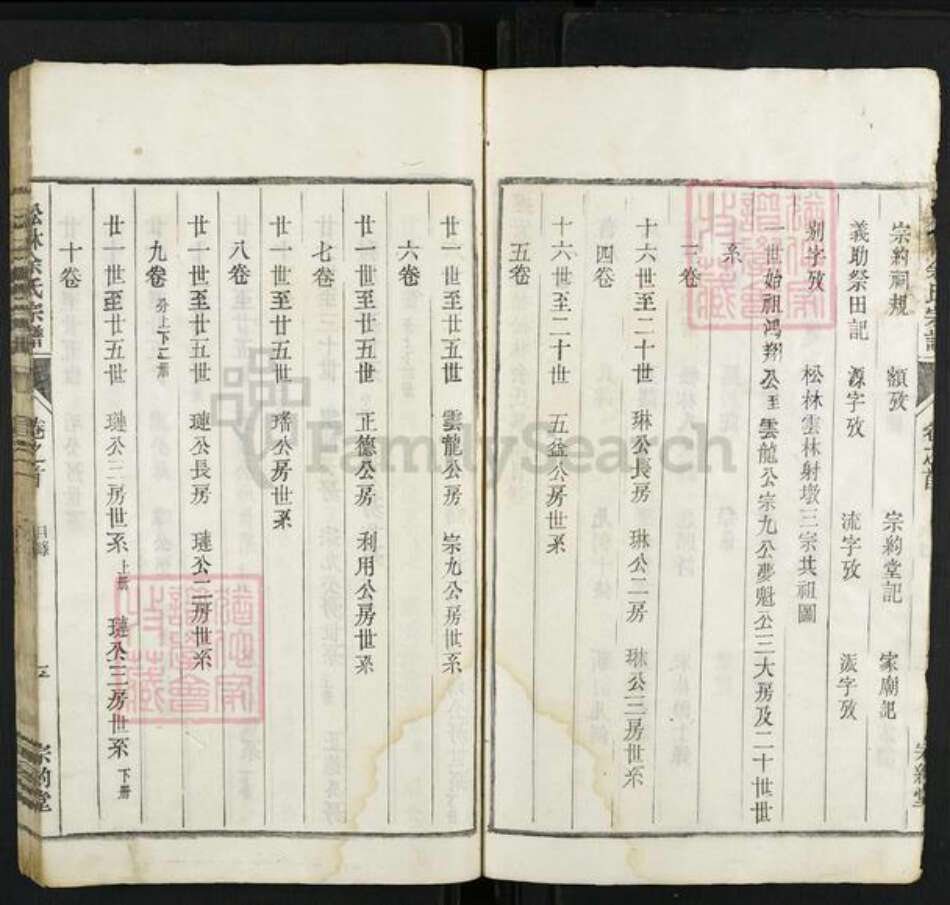 宗約祠規 額攷 宗約堂記 家廟記
義助祭田記 源字攷 流字攷 派字攷
別字攷 松林雲林射墩三宗共祖圖
一世始祖鴻翔公至雲龍公宗九公夢魁公三大房及二十世世
系
三卷
十六世至二十世 琳公長房 琳公二房 琳公三房世系
四卷
十六世至二十世 五益公房世系
五卷
廿一世至廿五世 雲龍公房 宗九公房世系
六卷
廿一世至廿五世 正德公房 利用公房世系
七卷
廿一世至廿五世 璠公房世系
八卷
廿一世至廿五世 璉公長房 璉公二房世系
九卷 分上下二冊
廿一世至廿五世 璉公三房世系 上冊 璉公三房世系 下冊
十卷
松林余氏宗譜 卷之首 目錄 三 宗約堂
FamilySearch